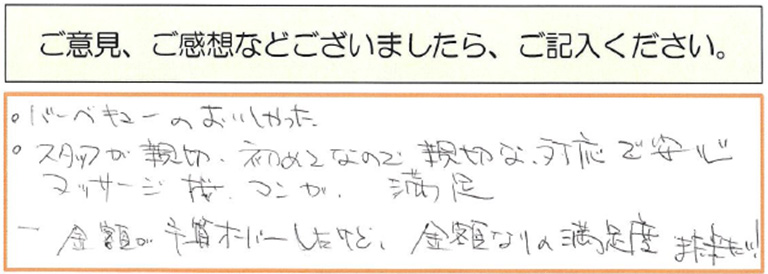 ご意見、ご感想などございましたら、ご記入ください。
・バーベキューのおいしかった
・スタッフが親切、初めてなので親切な対応で安心
マッサージ機、マンガ、満足
一金額が予算オーバーしたけど、金額なりの満足度 また来たい!